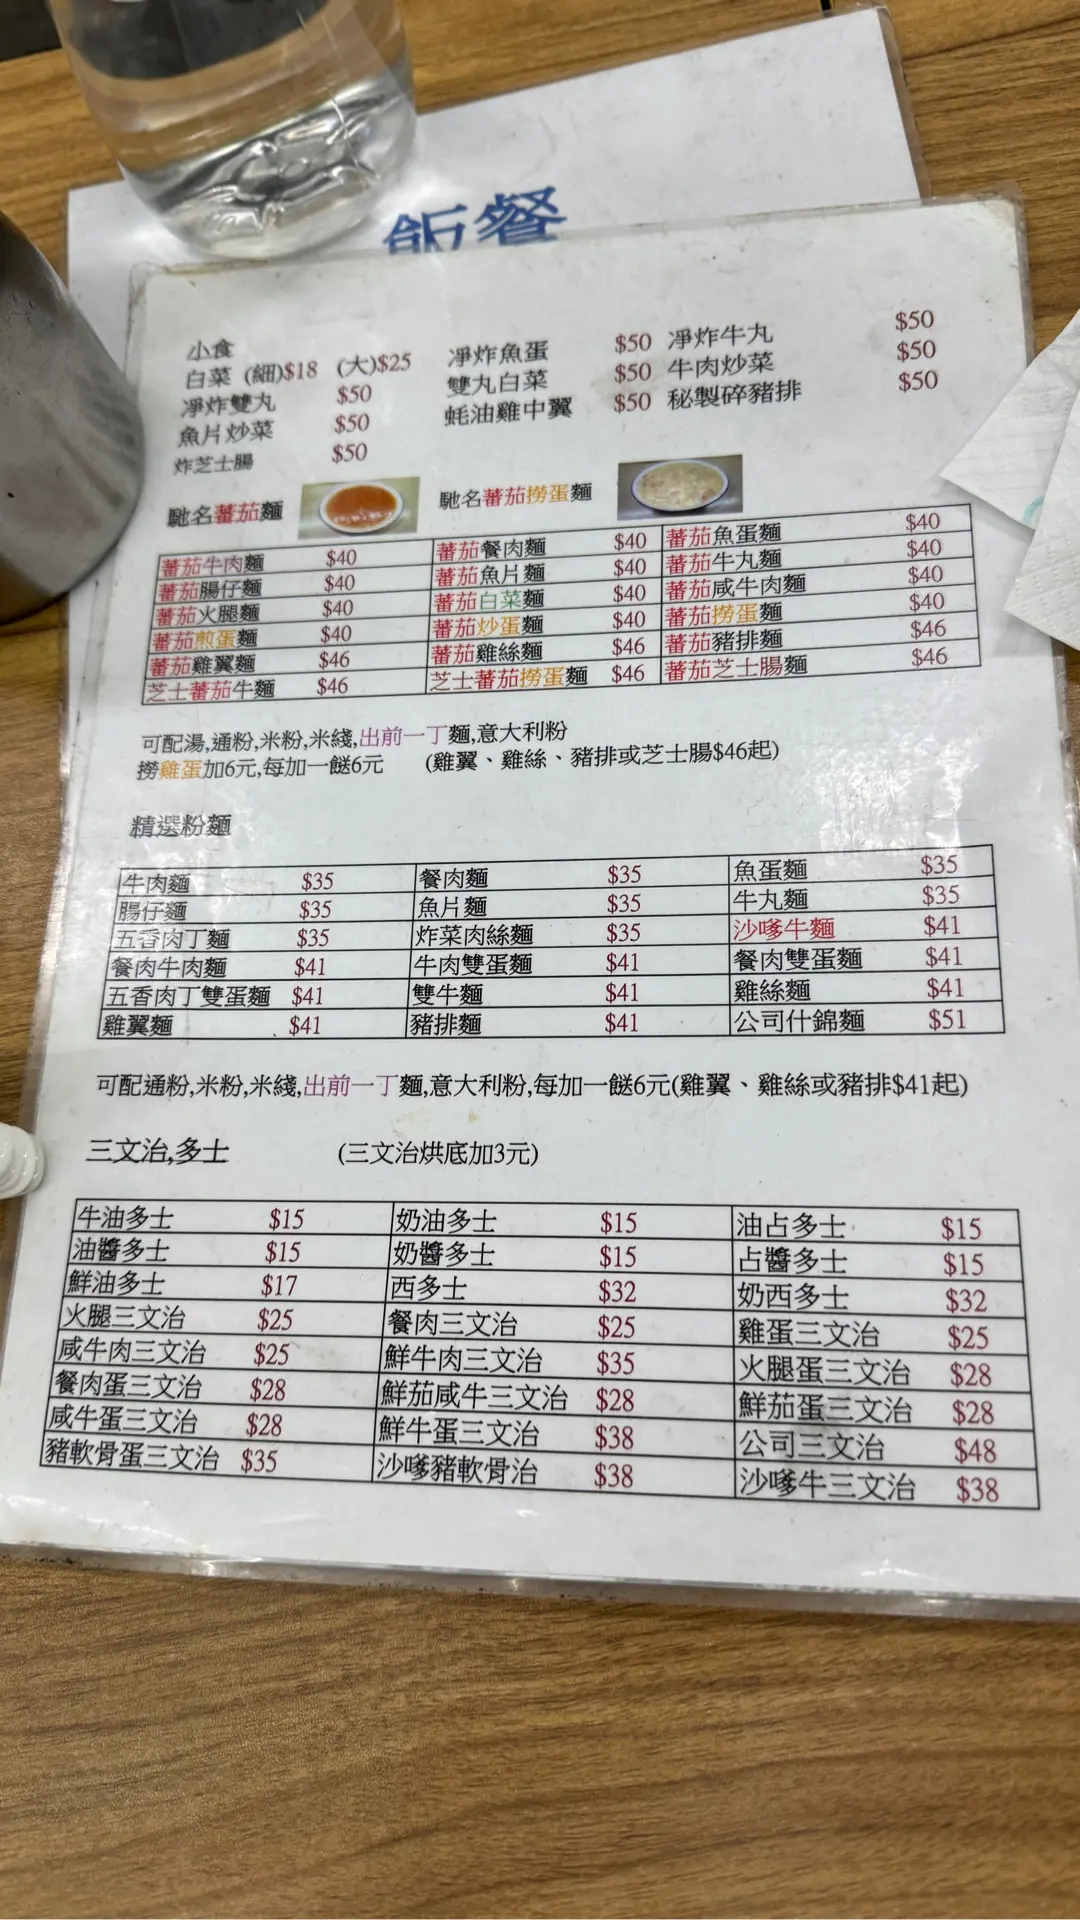 飯餐
小食
白菜 (細)$18 (大)$25 凈炸魚蛋 $50 凈炸牛丸 $50
凈炸雙丸 $50 雙丸白菜 $50 牛肉炒菜 $50
魚片炒菜 $50 蚝油雞中翼 $50 秘製碎豬排 $50
炸芝士腸 $50
馳名蕃茄麵 馳名蕃茄撈蛋麵
蕃茄牛肉麵 $40 蕃茄餐肉麵 $40 蕃茄魚蛋麵 $40
蕃茄腸仔麵 $40 蕃茄魚片麵 $40 蕃茄牛丸麵 $40
蕃茄火腿麵 $40 蕃茄白菜麵 $40 蕃茄咸牛肉麵 $40
蕃茄煎蛋麵 $40 蕃茄炒蛋麵 $40 蕃茄撈蛋麵 $40
蕃茄雞翼麵 $46 蕃茄雞絲麵 $46 蕃茄豬排麵 $46
芝士蕃茄牛麵 $46 芝士蕃茄撈蛋麵 $46 蕃茄芝士腸麵 $46
可配湯,通粉,米粉,米綫,出前一丁麵,意大利粉
撈雞蛋加6元,每加一餸6元 (雞翼、雞絲、豬排或芝士腸$46起)
精選粉麵
牛肉麵 $35 餐肉麵 $35 魚蛋麵 $35
腸仔麵 $35 魚片麵 $35 牛丸麵 $35
五香肉丁麵 $35 炸菜肉絲麵 $35 沙嗲牛麵 $41
餐肉牛肉麵 $41 牛肉雙蛋麵 $41 餐肉雙蛋麵 $41
五香肉丁雙蛋麵 $41 雙牛麵 $41 雞絲麵 $41
雞翼麵 $41 豬排麵 $41 公司什錦麵 $51
可配通粉,米粉,米綫,出前一丁麵,意大利粉,每加一餸6元(雞翼、雞絲或豬排$41起)
三文治,多士 (三文治烘底加3元)
牛油多士 $15 奶油多士 $15 油占多士 $15
油醬多士 $15 奶醬多士 $15 占醬多士 $15
鮮油多士 $17 西多士 $32 奶西多士 $32
火腿三文治 $25 餐肉三文治 $25 雞蛋三文治 $25
咸牛肉三文治 $25 鮮牛肉三文治 $35 火腿蛋三文治 $28
餐肉蛋三文治 $28 鮮茄咸牛三文治 $28 鮮茄蛋三文治 $28
咸牛蛋三文治 $28 鮮牛蛋三文治 $38 公司三文治 $48
豬軟骨蛋三文治 $35 沙嗲豬軟骨治 $38 沙嗲牛三文治 $38